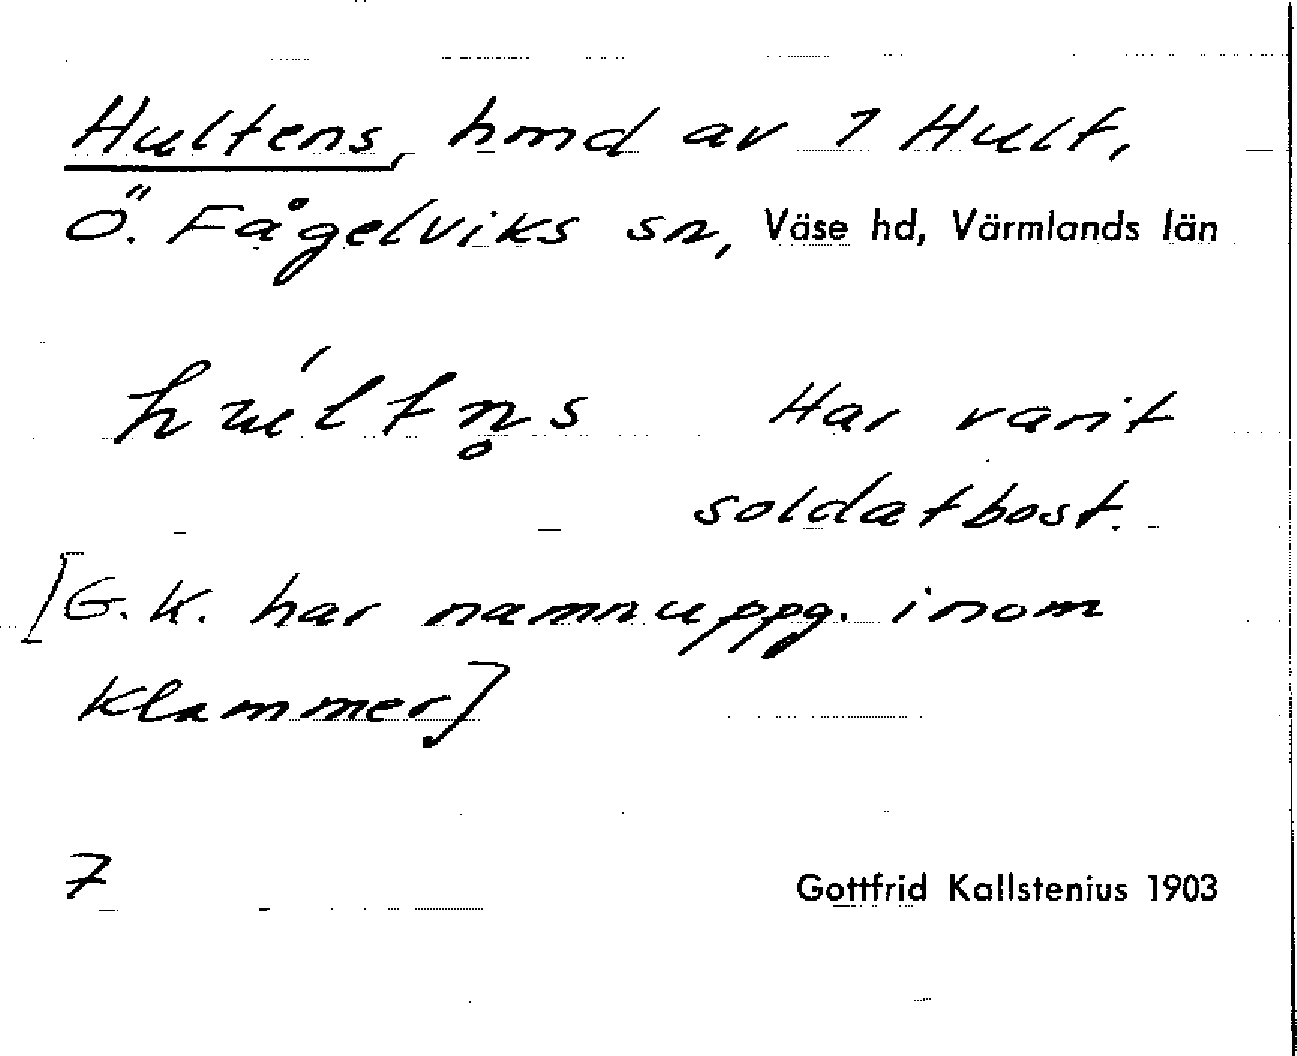 Hultens, hmd av 1 Hult,
Ö. Fågelviks sn, Väse hd, Värmlands län
húltn̥s Har varit
soldatbost.
[G.K. har namnuppg. inom
klammer]
7 Gottfrid Kallstenius 1903